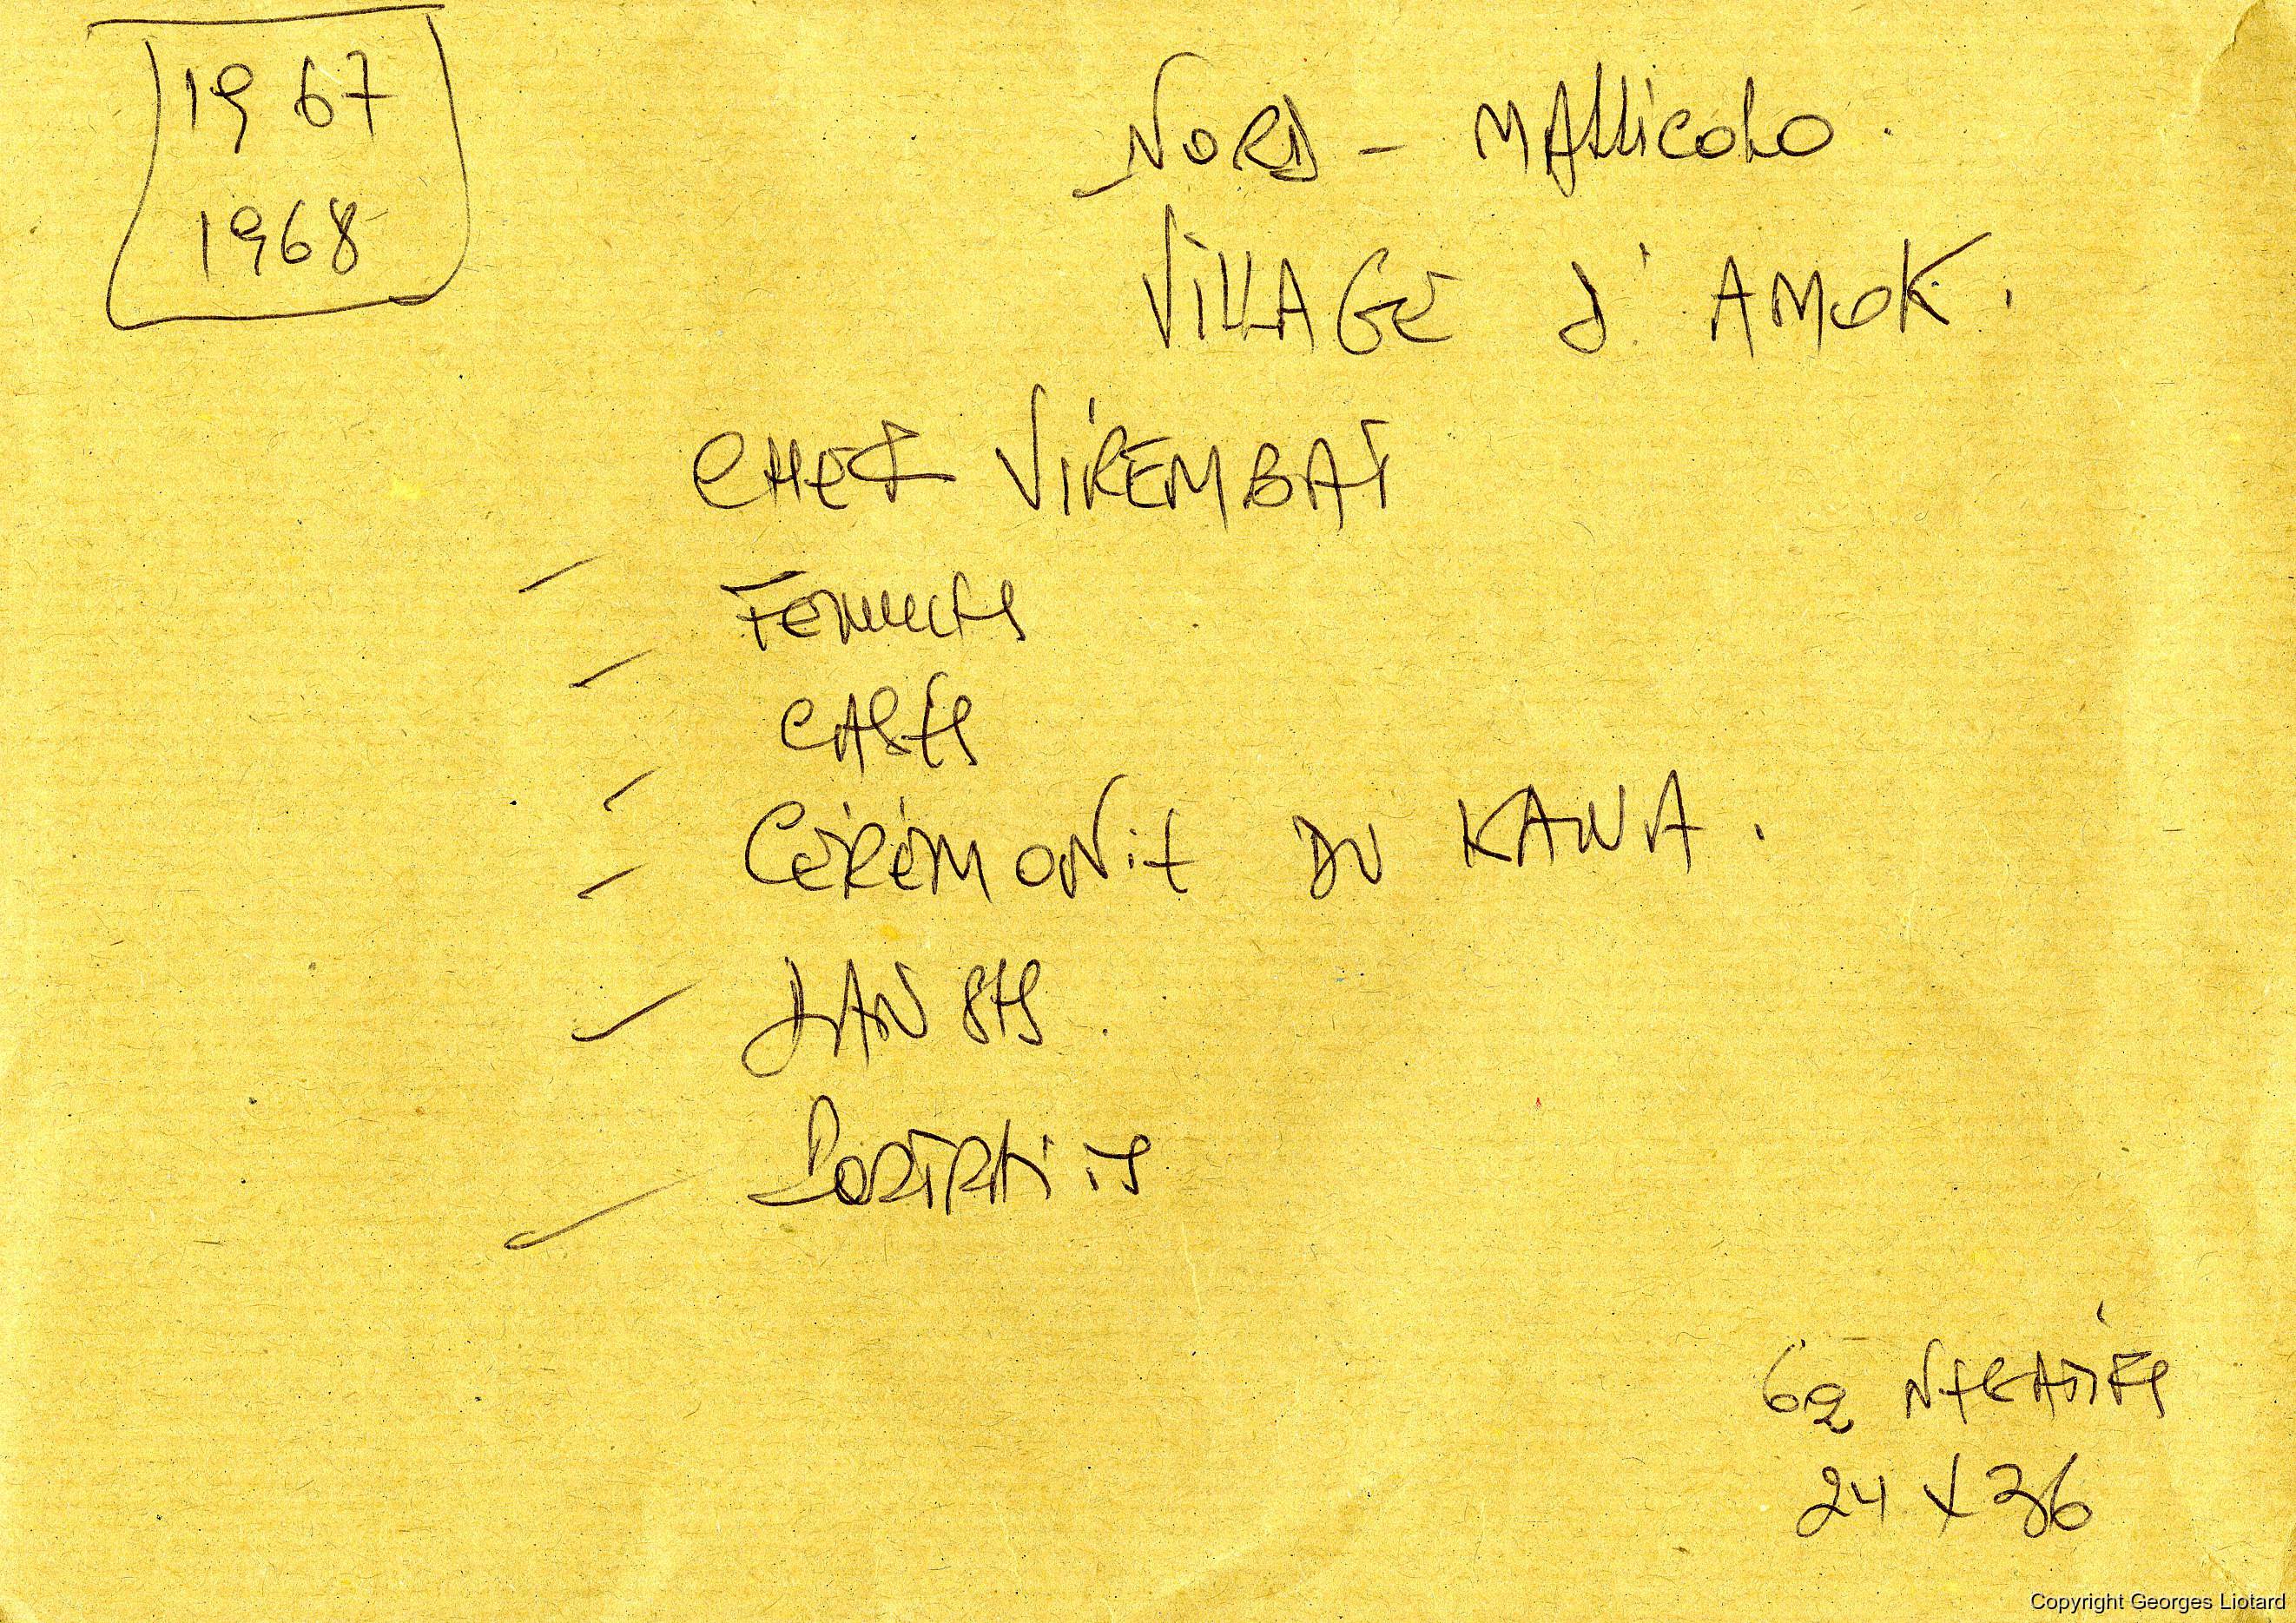 1967
1968
NORD - MALLICOLO.
VILLAGE d'AMOK.
CHEF VIREMBAT
- FEMMES
- CASES
- CÉRÉMONIE DU KAWA.
- DANSES.
- PORTRAITS
62 NÉGATIFS
24 x 36
Copyright Georges Liotard